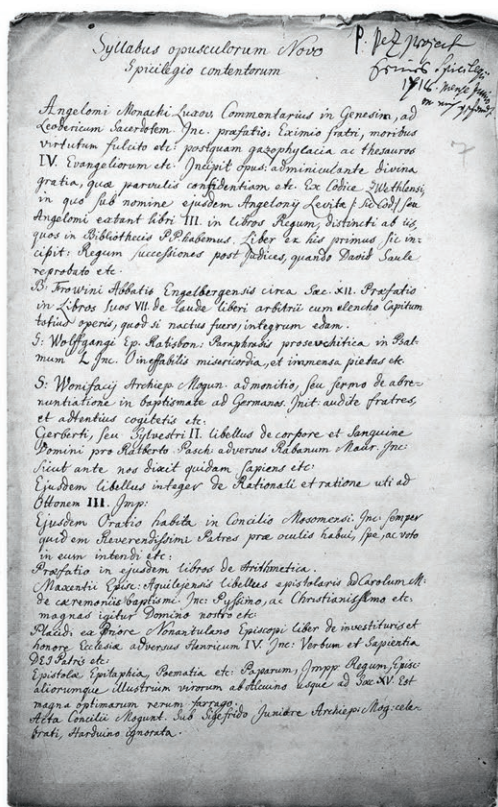 Syllabus opusculorum Novo
Spicilegio contentorum
P. Pez project
1716. mense
7
Angelomi Monachi Luxov. Commentarius in Genesim, ad
Leodericum Sacerdotem. Inc. præfatio: Eximio fratri, moribus
virtutum fulcito etc. postquam gazophylacia ac thesauros
IV. Evangeliorum etc. Incipit opus: adminiculante divina
gratia, quæ parvulis confidentiam etc. Ex Codice Zwethlensi,
in quo sub nomine ejusdem Angelomj Levitæ / sic Cod / seu
Angelomi extant libri III. in libros Regum, distincti ab iis,
quos in Bibliothecis P.P. habemus. Liber ex his primus sic in-
cipit: Regum successiones post Judices, quando David Saule
reprobato etc.
B. Frowini Abbatis Engelbergensis circa Sæc. XII. Præfatio
in Libros suos VII. de laude liberi arbitrii cum elencho Capitum
totius operis, quod si nactus fuero, integrum edam.
S: Wolffgangi Ep. Ratisbon: Paraphrasis prosevchitica in Psal-
mum L. Inc. O ineffabilis misericordia, et immensa pietas etc.
S: Wonifacij Archiep. Mogun. admonitio, seu sermo de abre-
nuntiatione in baptismate ad Germanos. Init. audite fratres,
et adtentius cogitetis etc.
Gerberti, seu Sylvestri II. libellus de corpore et Sanguine
Domini pro Ratberto Pasch: adversus Rabanum Maur. Inc:
Sicut ante nos dixit quidam sapiens etc:
Ejusdem libellus integer de Rationali et ratione uti ad
Ottonem III. Imp:
Ejusdem Oratio habita in Concilio Mosomensi. Inc: semper
quidem Reverendissimi Patres præ oculis habui, spe, ac voto
in eum intendi etc:
Præfatio in ejusdem libros de Arithmetica.
Maxentii Episc: Aquilejensis libellus epistolaris ad Carolum M.
de cæremoniis baptismi. Inc: Pyssimo, ac Christianissimo etc.
magnas igitur Domino nostro etc:
Placidi ex Priore Nonantulano Episcopi liber de investituris et
honore Ecclesiæ adversus Henricum IV. Inc: Verbum et Sapientia
DEI Patris etc:
Epistolæ Epitaphia, Poematia etc: Paparum, Impp. Regum, Episc:
aliorumque illustrum virorum ab usque ad Sæc. XV. Est
magna optimarum rerum farrago.
Acta Concilii Mogunt. sub Sigefrido Juniore Archiep. Mog: cele-
brati, Harduino ignorata.